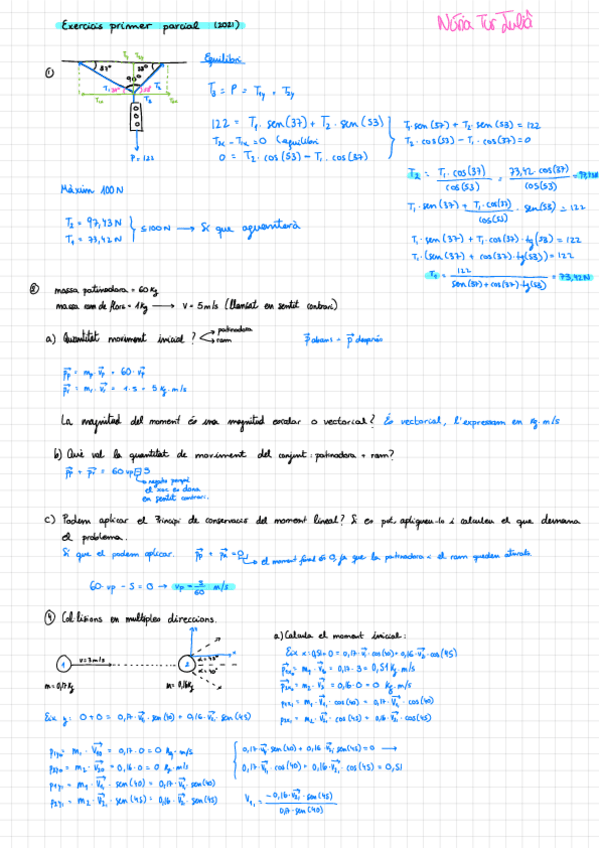 Exercicis primer parcial (2021)
Núria Tur Julià
①
Equilibri
37°
53°
90°
P = 122
T₃ = P = T₁y + T₂y
122 = T₁ · sen(37) + T₂ · sen(53)
T₂x - T₁x = 0 (equilibri)
0 = T₂ · cos(53) - T₁ · cos(37)
T₁ · sen(37) + T₂ · sen(53) = 122
T₂ · cos(53) - T₁ · cos(37) = 0
T₂ = T₁ · cos(37) / cos(53) = 73,42 · cos(37) / cos(53) =
T₁ · sen(37) + T₁ · cos(37) / cos(53) · sen(53) = 122
T₁ · sen(37) + T₁ · cos(37) · tg(53) = 122
T₁ · (sen(37) + cos(37) · tg(53)) = 122
T₁ = 122 / sen(37) + cos(37) · tg(53) = 73,42N
Màxim 100N
T₂ = 97,43N
T₁ = 73,42N
≤ 100N → Sí que aguantarà
②
massa patinadora = 60Kg
massa ram de flors = 1Kg → v = 5m/s (llançat en sentit contrari)
a) Quantitat moviment inicial?
patinadora
ram
p abans = p després
pp = mp · vp = 60 · vp
pr = mr · vr = 1 · 5 = 5 Kg · m/s
La magnitud del moment és una magnitud escalar o vectorial? És vectorial, l'expressam en Kg · m/s
b) Què val la quantitat de moviment del conjunt: patinadora + ram?
pp + pr = 60 vp - 5
negatiu perquè
el xoc es dona
en sentit contrari.
c) Podem aplicar el Principi de conservació del moment lineal? Si es pot apliqueu-lo i calculeu el que demana
el problema.
Sí que el podem aplicar. pp + pr = 0 → el moment final és 0, ja que la patinadora i el ram queden aturats
60 · vp - 5 = 0 → vp = 5/60 m/s
④ Col·lisions en múltiples direccions.
1
v = 3m/s
2
m = 0,17Kg
m = 0,16Kg
a) Calcula el moment inicial:
Eix x: 0,51 + 0 = 0,17 · v₁ · cos(40) + 0,16 · v₂ · cos(45)
p₁x₀ = m₁ · v₀ = 0,17 · 3 = 0,51 Kg · m/s
p₂x₀ = m₂ · v₂ = 0,16 · 0 = 0 Kg · m/s
p₁x₁ = m₁ · v₁ · cos(40) = 0,17 · v₁ · cos(40)
p₂x₁ = m₂ · v₂ · cos(45) = 0,16 · v₂ · cos(45)
Eix y: 0 + 0 = 0,17 · v₁ · sen(40) + 0,16 · v₂ · sen(45)
p₁y₀ = m₁ · v₁₀ = 0,17 · 0 = 0 Kg · m/s
p₂y₀ = m₂ · v₂₀ = 0,16 · 0 = 0 Kg · m/s
p₁y₁ = m₁ · v₁ · sen(40) = 0,17 · v₁ · sen(40)
p₂y₁ = m₂ · v₂₁ · sen(45) = 0,16 · v₂ · sen(45)
0,17 · v₁ · sen(40) + 0,16 · v₂₁ sen(45) = 0 →
0,17 · v₁ · cos(40) + 0,16 · v₂₁ · cos(45) = 0,51
v₁₁ = -0,16 · v₂₁ · sen(45) / 0,17 · sen(40)